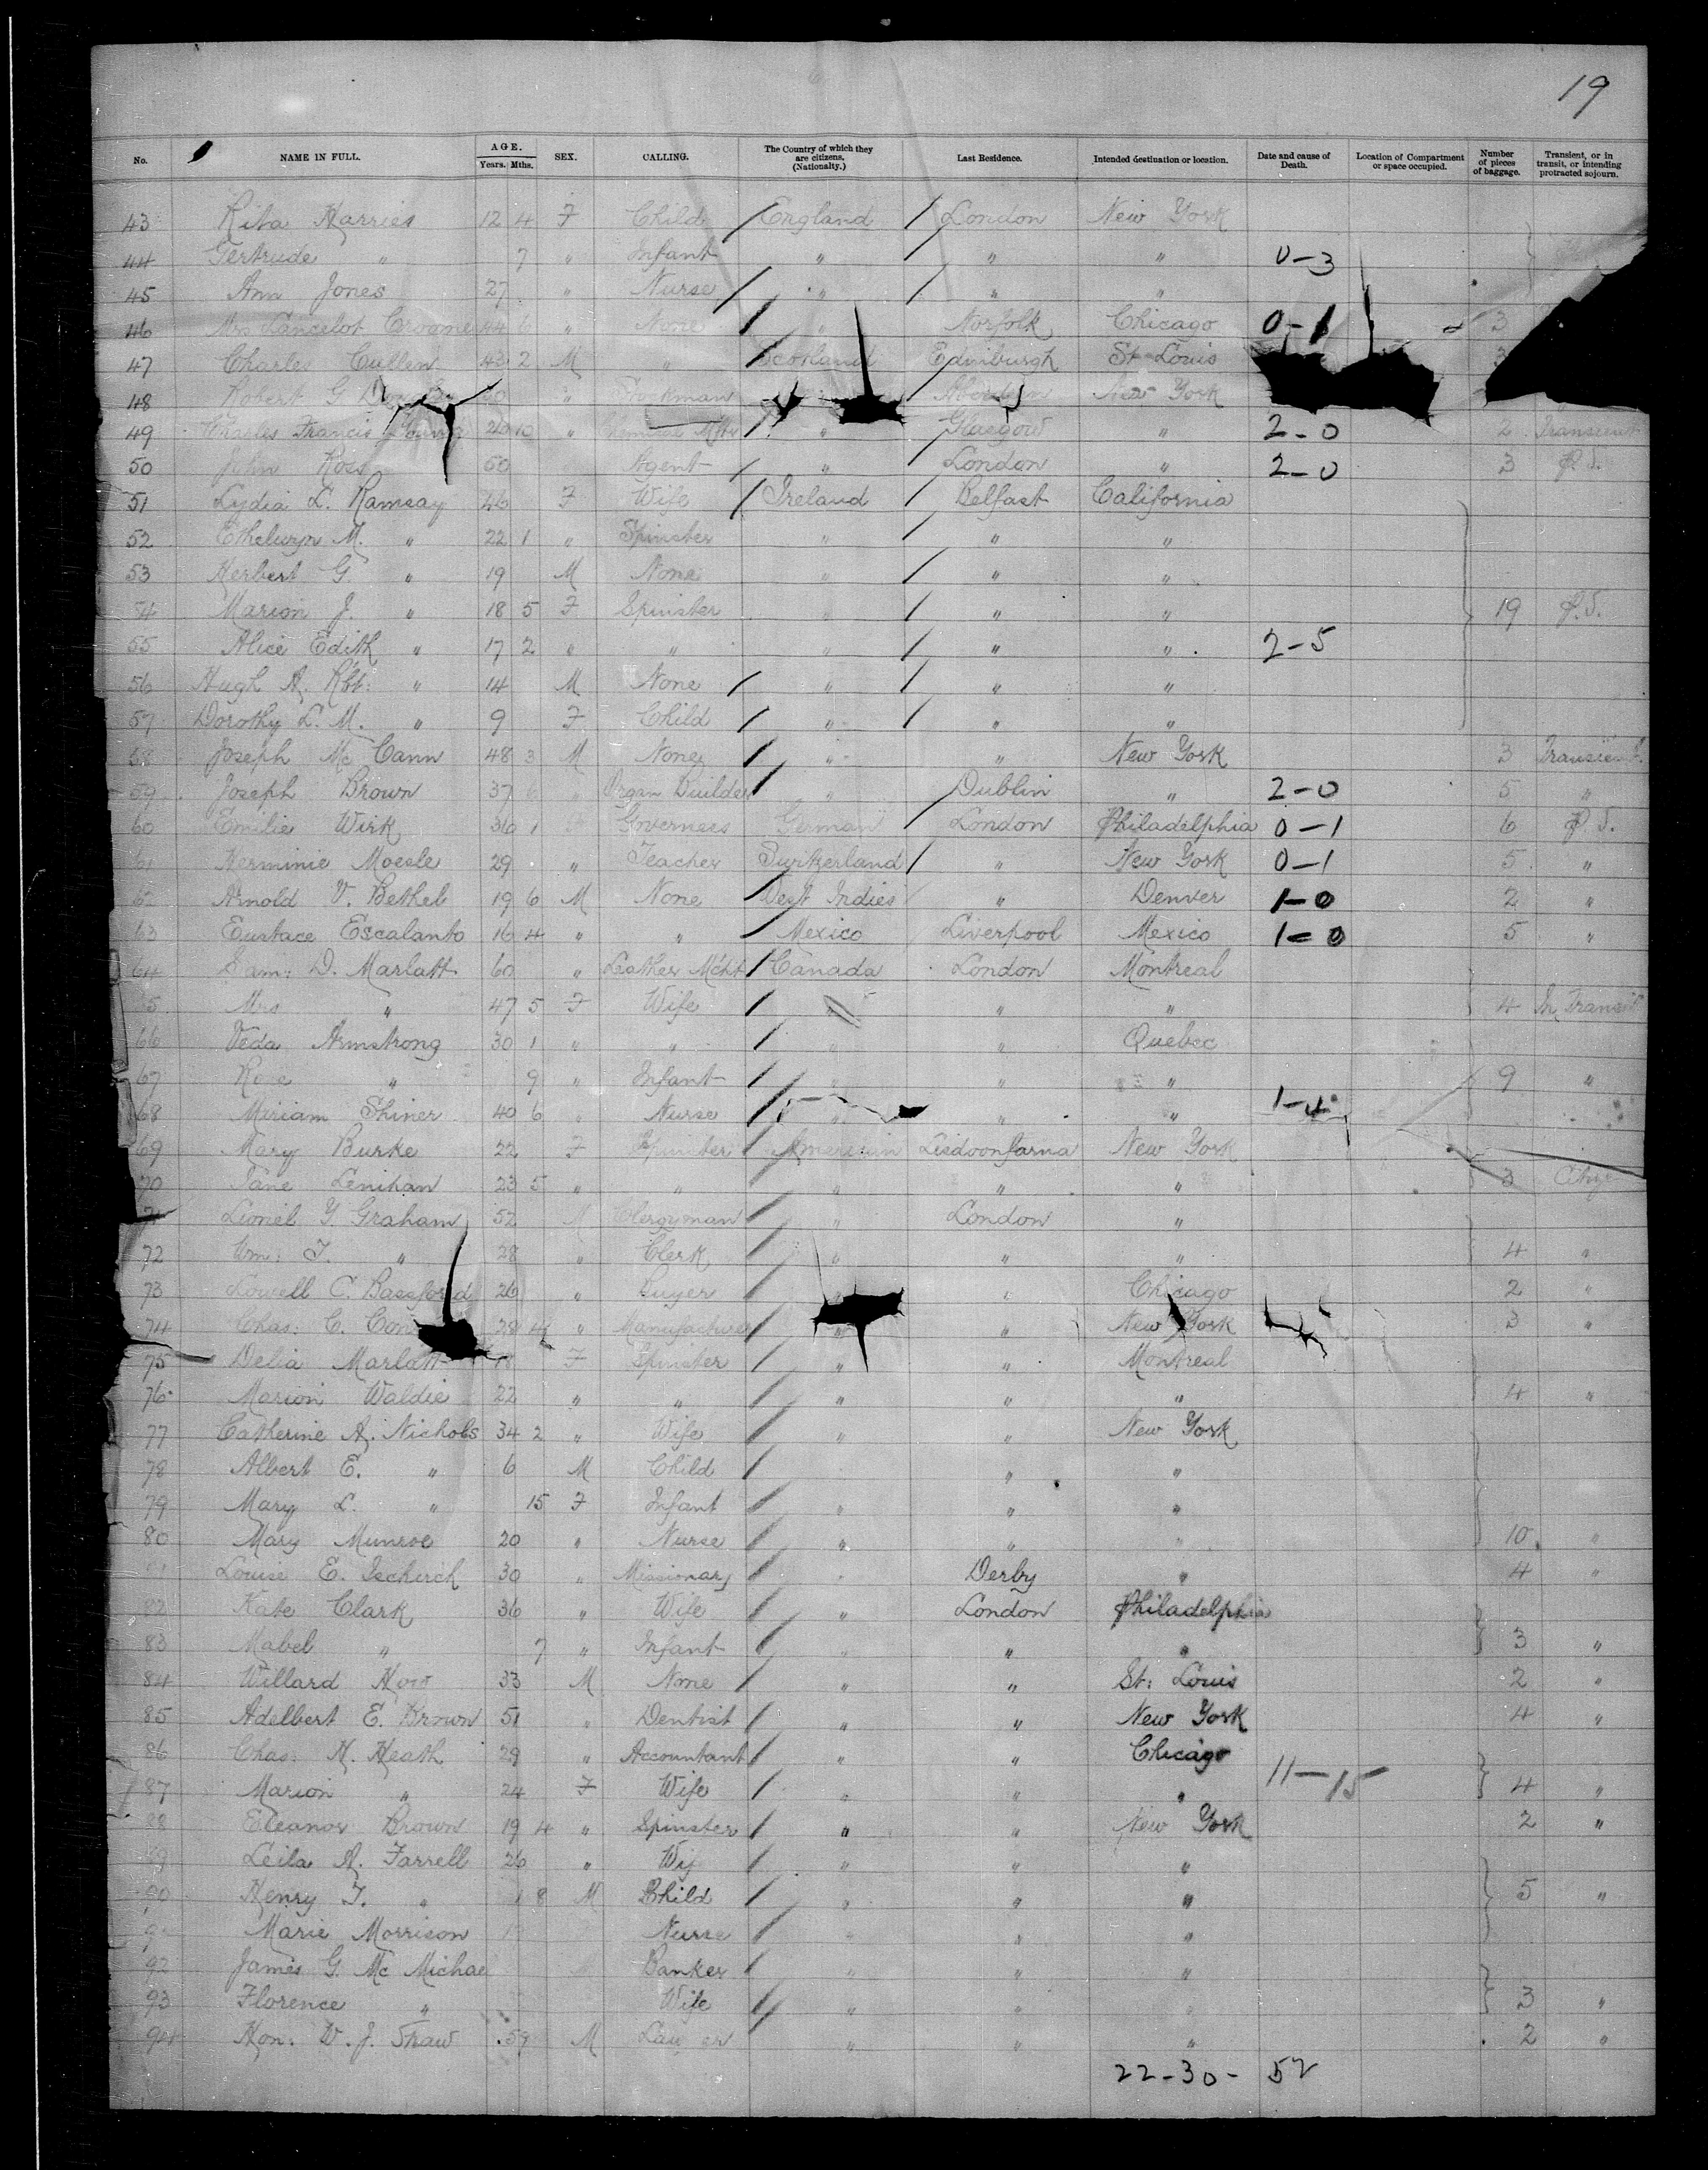 19
No. NAME IN FULL. AGE. Years. Mths. SEX. CALLING. The Country of which they are citizens. (Nationality.) Last Residence. Intended destination or location. Date and cause of Death. Location of Compartment or space occupied. Number of pieces of baggage. Transient, or in transit, or intending protracted sojourn.
43 Rita Harries 12 4 F Child England London New York
44 Gertrude " 7 " Infant " " " 0-3
45 Ann Jones 27 " Nurse " " "
46 Mrs Lancelot 44 6 " None " Norfolk Chicago 0-1 3
47 Charles Cullen 43 2 M " Scotland Edinburgh St Louis 3
48 Robert G " New York
49 Charles Francis Young 26 10 " " Glasgow " 2-0 2 Transient
50 John Ross 50 Agent " London " 2-0 3 P.S.
51 Lydia L. Ramsay 46 F Wife Ireland Belfast California
52 Ethelwyn M. " 22 1 " Spinster " " "
53 Herbert G " 19 M None " " "
54 Marion J. " 18 5 F Spinster " " " 19 P.S.
55 Alice Edith " 17 2 " " " " " 2-5
56 Hugh A. Rbt: " 14 M None " " "
57 Dorothy L. M. " 9 F Child " " "
58 Joseph Mc Cann 48 3 M None " " New York 3 Transient
59 Joseph Brown 37 6 " Organ Builder " Dublin " 2-0 5 "
60 Emilie Wirk 36 1 Governess German London Philadelphia 0-1 6 P S.
61 Herminie Moesle 29 " Teacher Switzerland " New York 0-1 5 "
62 Arnold V. Bethel 19 6 M None West Indies " Denver 1-0 2 "
63 Eustace Escalanto 16 4 " " Mexico Liverpool Mexico 1-0 5 "
64 Sam: D. Marlatt 60 " Leather Mcht Canada London Montreal
65 Mrs " 47 5 F Wife " " " 4 In Transit
66 Veda Armstrong 30 1 " " " " Quebec
67 Rose " 9 " Infant " " " 9 "
68 Miriam Shiner 40 6 " Nurse " " " 1-4
69 Mary Burke 22 F Spinster American Lisdoonfarna New York
70 Jane Lenihan 23 5 " " " " " 3
71 Lionel Y Graham 52 M Clergyman " London "
72 Wm: T. " 28 " Clerk " " " 4 "
73 Lowell C. Bassford 26 " Buyer " " Chicago 2 "
74 Chas: C. 28 4 " Manufacturer " " New York 3 "
75 Delia Marlatt 18 F Spinster " " Montreal
76 Marion Waldie 22 " " " " " 4 "
77 Catherine A. Nichols 34 2 " Wife " " New York
78 Albert E. " 6 M Child " "
79 Mary L. " 15 F Infant " " "
80 Mary Munroe 20 " Nurse " " " 10 "
Louise E. 30 " Missionary " Derby " 4 "
82 Kate Clark 36 " Wife " London Philadelphia
83 Mabel " 7 " Infant " " " 3 "
84 Willard How 33 M None " " St: Louis 2 "
85 Adelbert E. Brown 51 " Dentist " " New York 4 "
86 Chas: H. Heath 29 " Accountant " " Chicago
87 Marion " 24 F Wife " " " 11-15 4 "
88 Eleanor Brown 19 4 " Spinster " " New York 2 "
89 Leila A. Farrell 26 " Wif " " "
90 Henry T. " 1 8 M Child " " " 5 "
Marie Morrison 19 Nurse " " "
92 James G. Mc Michae Banker " " "
93 Florence " Wife " " " 3 "
94 Hon: W. J. Shaw 59 M Law er " " " 2 "
22-30- 52